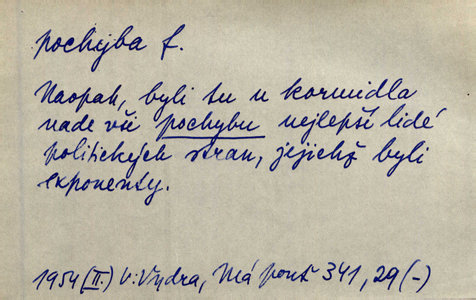 pochyba f.
Naopak, byli tu u kormidla
nade vší pochybu nejlepší lidé
politických stran, jejichž byli
exponenty.
1954 (II.) V. Vydra, Má pouť 341, 29 (-)